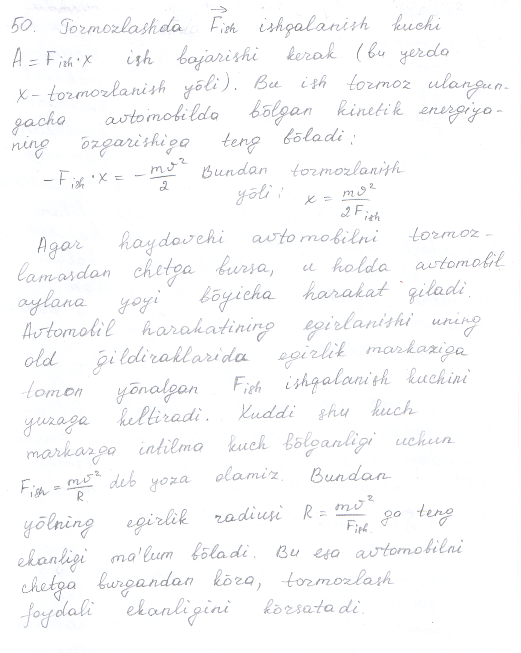 50. Tormozlashda F⃗ish ishqalanish kuchi
A = Fish·x ish bajarishi kerak (bu yerda
x - tormozlanish yōli). Bu ish tormoz ulangun-
gacha avtomobilda bōlgan kinetik energiya-
ning ōzgarishiga teng bōladi:
-Fish·x = -mϑ²/2 Bundan tormozlanish
yōli: x = mϑ²/2Fish
Agar haydovchi avtomobilni tormoz-
lamasdan chetga bursa, u holda avtomobil
aylana yoyi bōyicha harakat qiladi.
Avtomobil harakatining egirlanishi uning
old ḡildiraklarida egirlik markaziga
tomon yōnalgan Fish ishqalanish kuchini
yuzaga keltiradi. Xuddi shu kuch
markazga intilma kuch bōlganligi uchun
Fish = mϑ²/R deb yoza olamiz. Bundan
yōlning egirlik radiusi R = mϑ²/Fish ga teng
ekanligi ma'lum bōladi. Bu esa avtomobilni
chetga burgandan kōra, tormozlash
foydali ekanligini kōrsatadi.